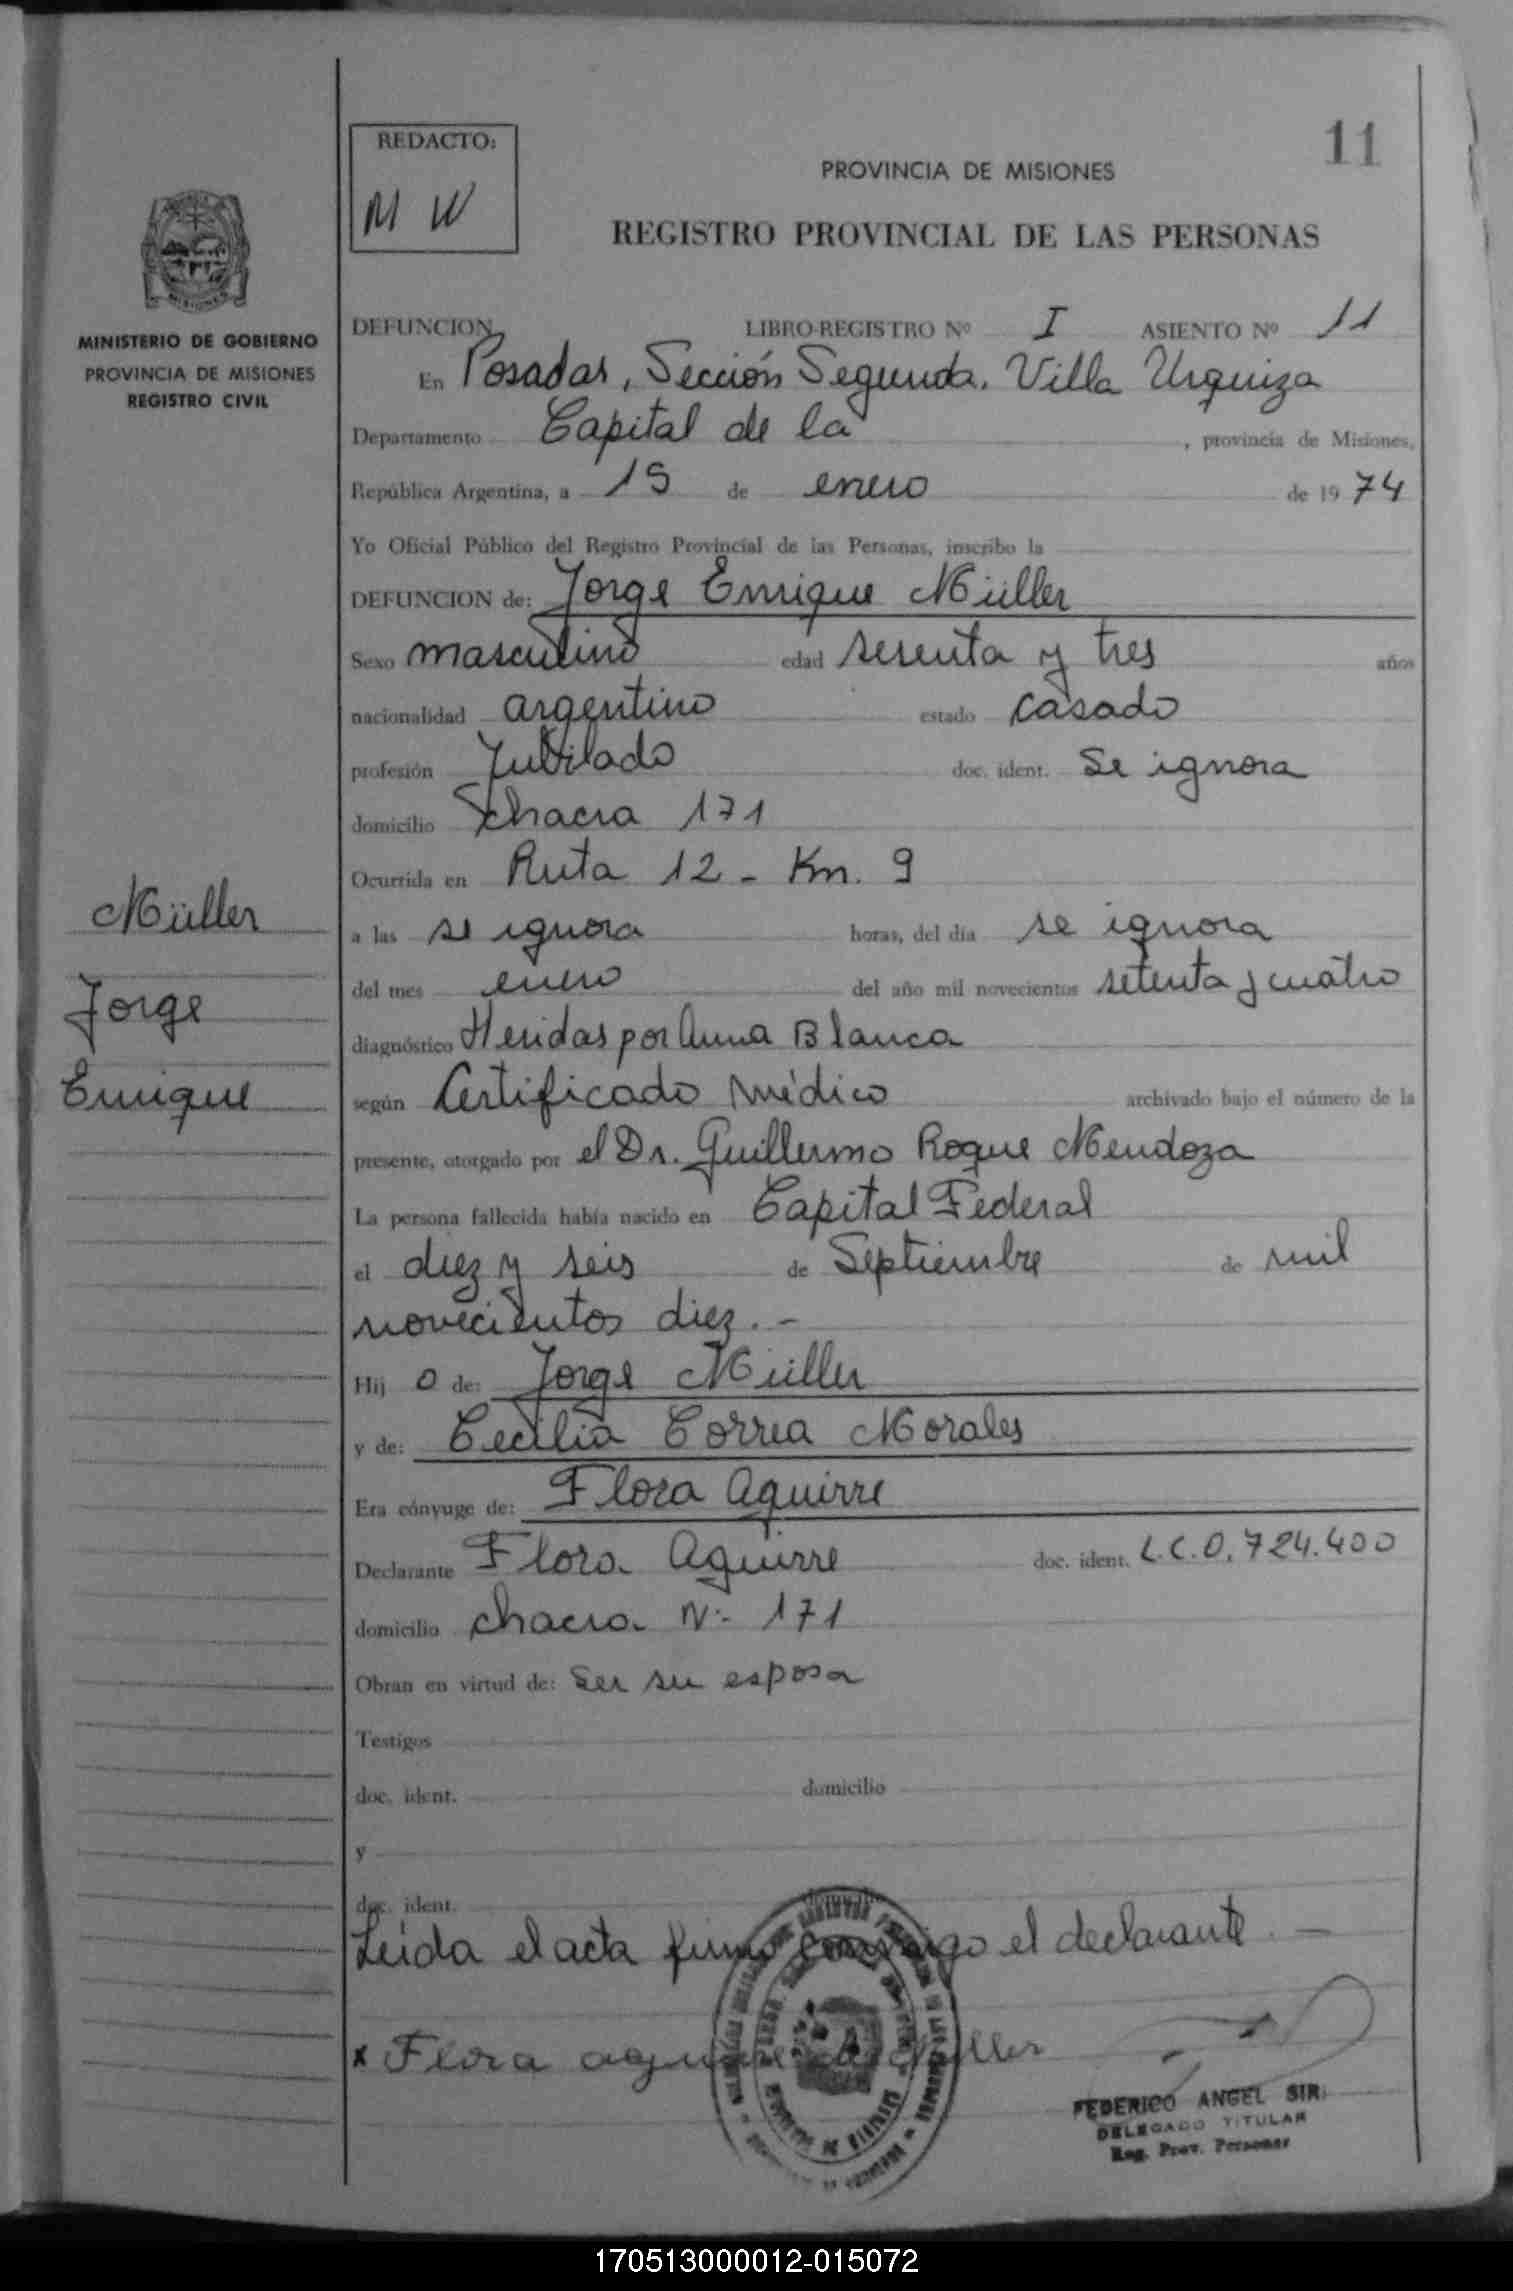 11
REDACTO:
M W
PROVINCIA DE MISIONES
REGISTRO PROVINCIAL DE LAS PERSONAS
MISIONES
MINISTERIO DE GOBIERNO
PROVINCIA DE MISIONES
REGISTRO CIVIL
DEFUNCION LIBRO-REGISTRO Nº I ASIENTO Nº 11
En Posadas, Sección Segunda. Villa Urquiza
Departamento Capital de la , provincia de Misiones,
República Argentina, a 15 de enero de 19 74
Yo Oficial Público del Registro Provincial de las Personas, inscribo la
DEFUNCION de: Jorge Enrique Müller
Sexo masculino edad sesenta y tres años
nacionalidad argentino estado casado
profesión Jubilado doc. ident. Se ignora
domicilio chacra 171
Ocurrida en Ruta 12 - Km. 9
Müller
Jorge
Enrique
a las se ignora horas, del día se ignora
del mes enero del año mil novecientos setenta y cuatro
diagnóstico Heridas por Arma Blanca
según Certificado Médico archivado bajo el número de la
presente, otorgado por el Dr. Guillermo Roque Mendoza
La persona fallecida había nacido en Capital Federal
el diez y seis de Septiembre de mil
novecientos diez. -
Hij o de: Jorge Müller
y de: Cecilia Correa Morales
Era cónyuge de: Flora Aguirre
Declarante Flora Aguirre doc. ident. L.C.0.724.400
domicilio chacra Nº 171
Obran en virtud de: Ser su esposa
Testigos
doc. ident. domicilio
y
doc. ident. domicilio
Leida el acta firma conmigo el declarante. -
x Flora aguirre de Muller
FEDERICO ANGEL SIR
DELEGADO TITULAR
Reg. Prov. Personas
170513000012-015072